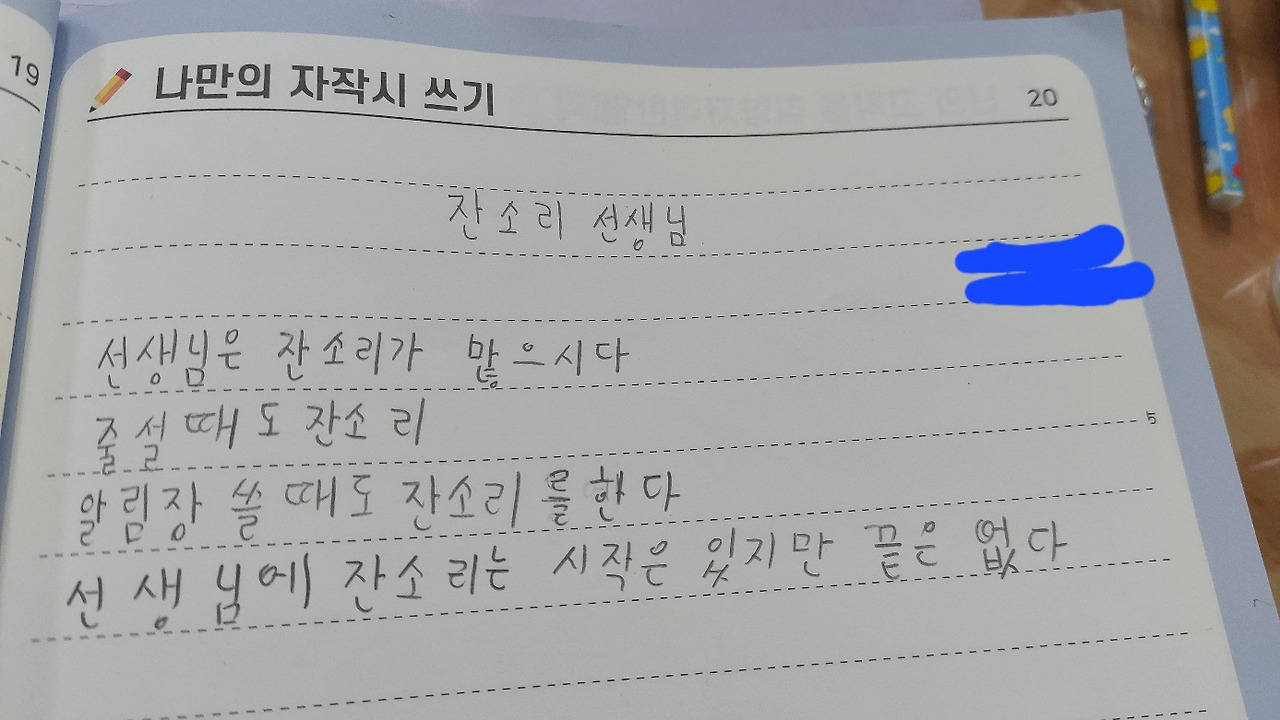 19
나만의 자작시 쓰기
20
잔소리 선생님
선생님은 잔소리가 많으시다
줄설때도 잔소리
5
알림장 쓸때도 잔소리를한다
선생님에 잔소리는 시작은 있지만 끝은 없다